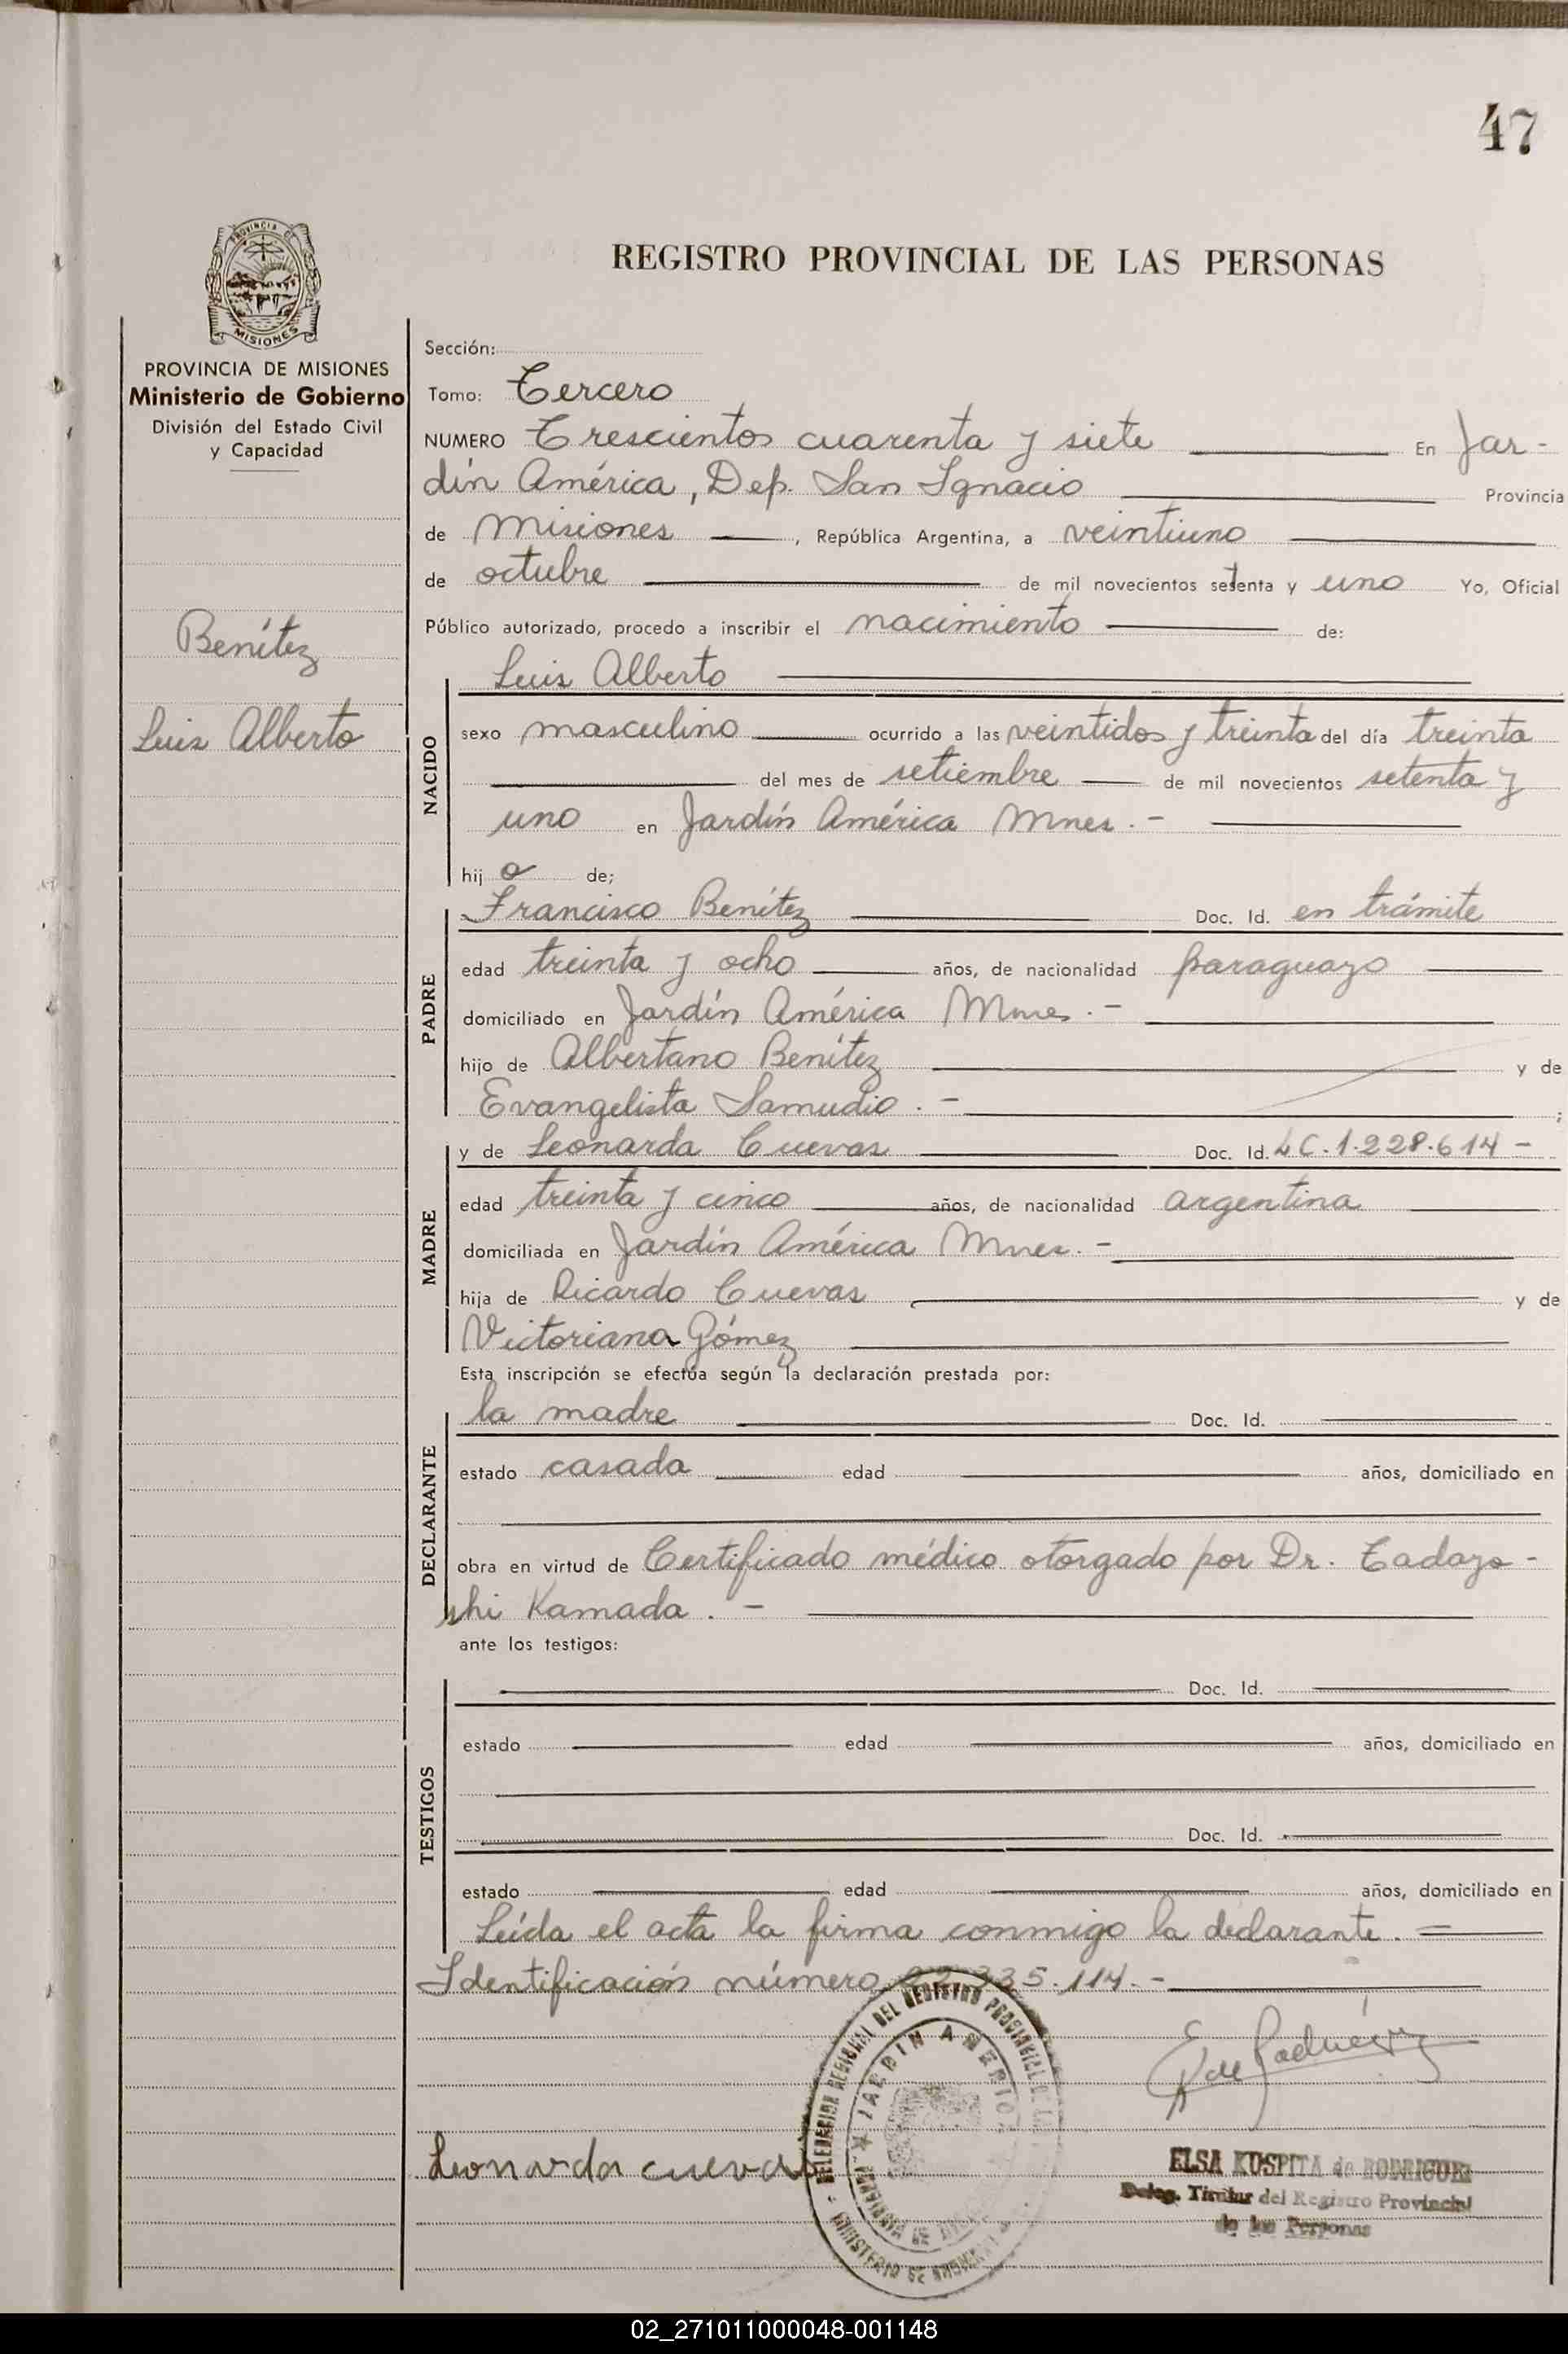 47
PROVINCIA DE
MISIONES
REGISTRO PROVINCIAL DE LAS PERSONAS
PROVINCIA DE MISIONES
Ministerio de Gobierno
División del Estado Civil
y Capacidad
Benítez
Luis Alberto
Sección:
Tomo: Tercero
NUMERO Trescientos cuarenta y siete En Jar-
dín América, Dep. San Ignacio Provincia
de Misiones, República Argentina, a veintiuno
de octubre de mil novecientos setenta y uno Yo, Oficial
Público autorizado, procedo a inscribir el nacimiento de:
Luis Alberto
NACIDO
sexo masculino ocurrido a las veintidos y treinta del día treinta
del mes de setiembre de mil novecientos setenta y
uno en Jardín América Mnes.-
hijo de;
Francisco Benítez Doc. Id. en trámite
PADRE
edad treinta y ocho años, de nacionalidad paraguayo
domiciliado en Jardín América Mnes.-
hijo de Albertano Benítez y de
Evangelista Samudio.- ;
y de Leonarda Cuevas Doc. Id. LC.1.228.614-
MADRE
edad treinta y cinco años, de nacionalidad argentina
domiciliada en Jardín América Mnes.-
hija de Ricardo Cuevas y de
Victoriana Gómez
Esta inscripción se efectúa según la declaración prestada por:
la madre Doc. Id.
DECLARANTE
estado casada edad años, domiciliado en
obra en virtud de Certificado médico otorgado por Dr. Tadayo-
shi Kamada.-
ante los testigos:
Doc. Id.
TESTIGOS
estado edad años, domiciliado en
Doc. Id.
estado edad años, domiciliado en
Leída el acta la firma conmigo la declarante.=
Identificación número 335.114.-
DELEGACION REGIONAL DEL REGISTRO PROVINCIAL DE LAS
JARDIN AMERICA
MINISTERIO DE GOBIERNO
Leonarda cuevas
ELSA KUSPITA de RODRIGUEZ
Deleg. Titular del Registro Provincial
de las Personas
02_271011000048-001148